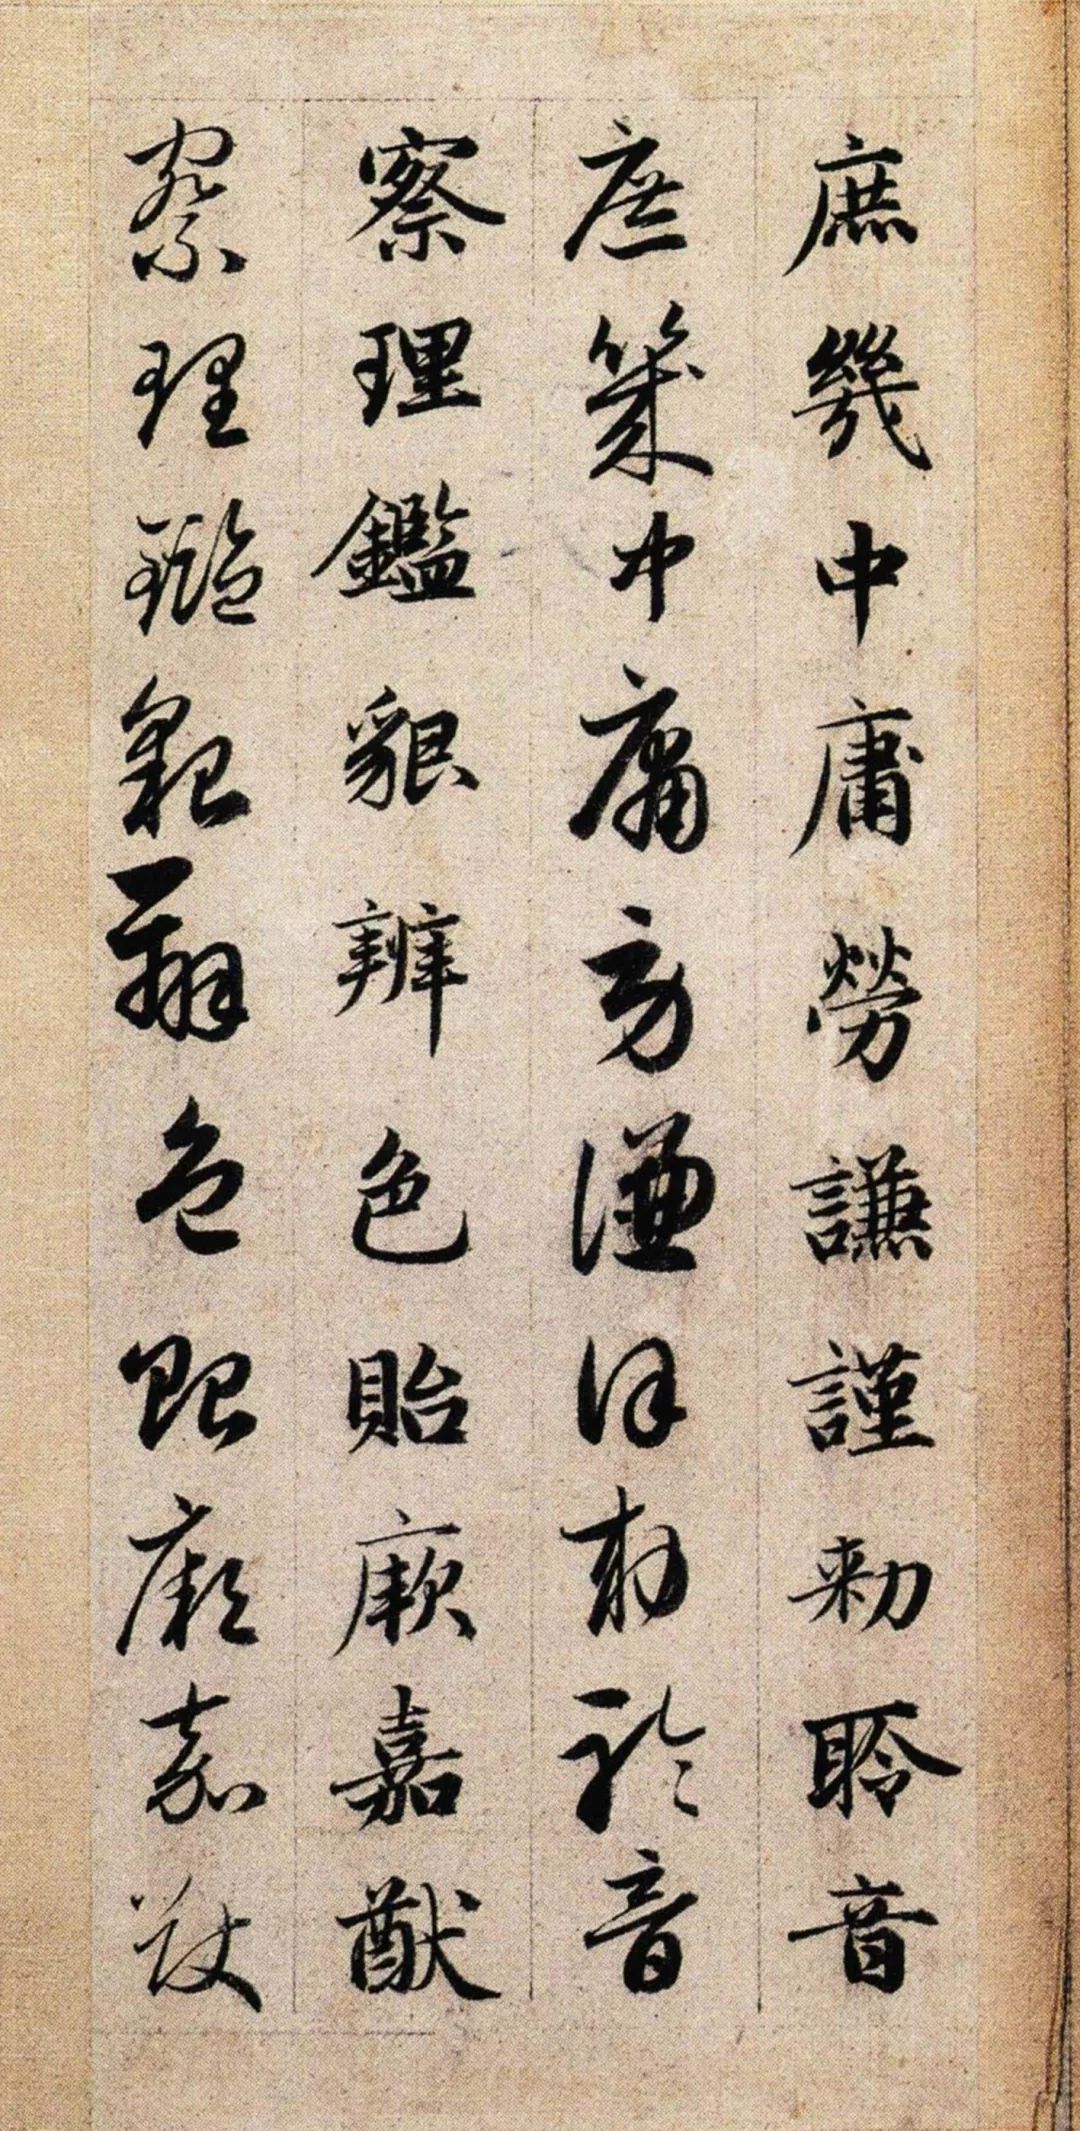 庶幾中庸勞謙謹勑聆音
庶幾中庸勞謙謹勑聆音
察理鑑貌辨色貽厥嘉猷
察理鑑貌辨色貽厥嘉猷